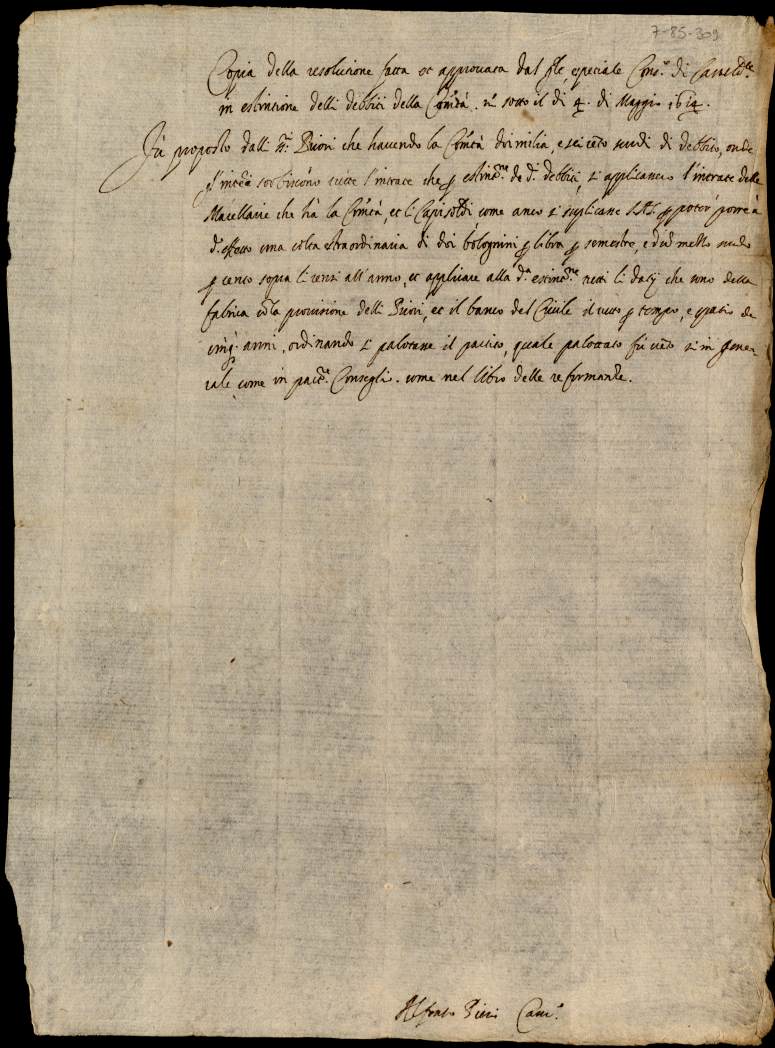 7-85-309
Copia della resolutione fatta et approvata dal gñle, e speciale Cons.º di
in estintione delli debbiti della Cõmtà sotto il di 4. di Maggio 1614.
Fù proposto dalli SS.ri Priori che havendo la Cõmtà doi milia, e sei cẽto scudi di debbito, onde
gl'interẽ sorbiscono tutte l'intrate che p estint.ne de d.i debbiti, si applicano l'intrate delle
Macellarie che hà la Cõmtà, et li Capisoldi come anco si suplicare S.A.S. p poter porre à
d.º effetto una colta straordinaria di doi bolognini p libra p semestro, e d'un mezzo scudo
p cento sopra li censi all'anno, et applicare alla d.a estint.ne tutti li datij che sono della
fabrica cõ la provisione delli Priori, et il banco del Civile il tutto p tempo, e spatio de
cinq. anni, ordinando si palotasse il partito, quale palottato fù vẽto si in gene-
rale come in part.re Consegli. come nel libro delle reformanze.
Alfonso Pieri Canc.º